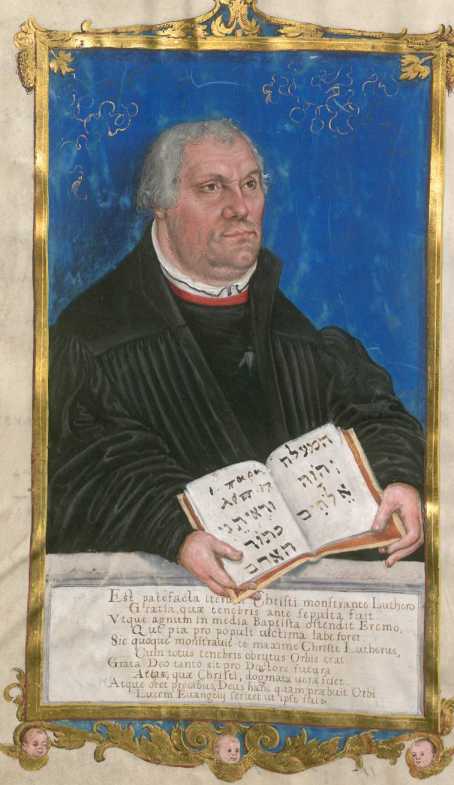 1. παρα.
וראיתני
כתור
האדם
המעלה
יהוה
אלהים
Est patefacta Christi monstrante Luthero
Gratia, quæ tenebris ante sepulta fuit.
Vtque agnum in media Baptista ostendit Eremo,
Qui pia pro populi uictima labe foret.
Sic quoque monstrauit te maxime Christe Lutherus,
Cum totus tenebris obrutus Orbis erat.
Grata Deo tanto sit pro Doctore futura
Aetas, quæ Christi, dogmata uera sciet.
Atque oret precibus, Deus hanc, quam præbuit Orbi
Lucem Euangelij seruet ut ipse suis.